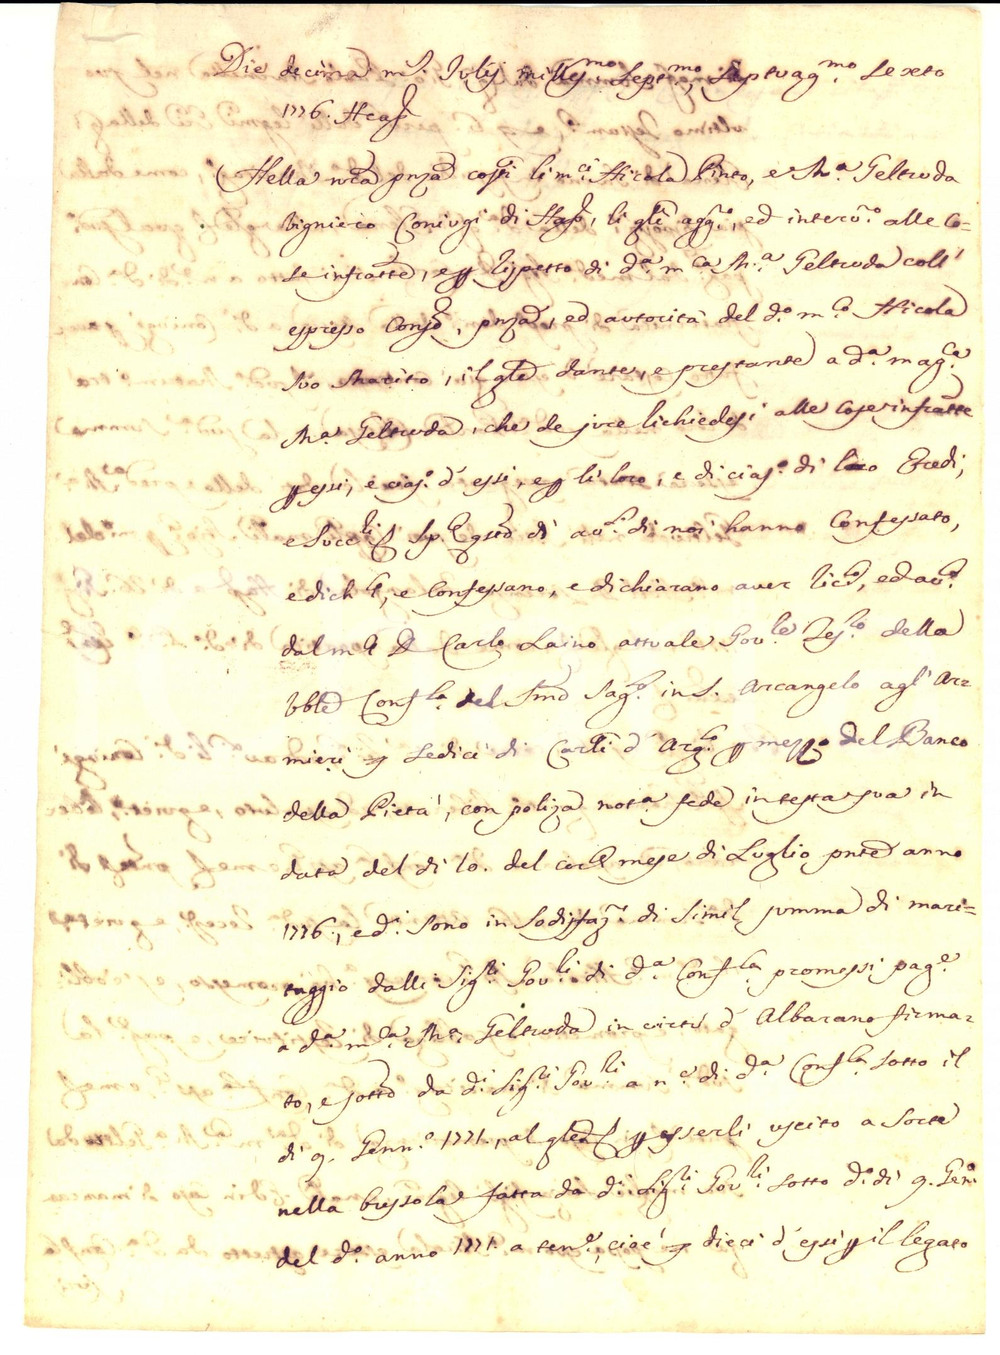 Die decima m.s Julij mill.mo Sept.mo Septuag.mo Sexto
1776. Neap.
Nella nra pnza costi li m.ci Nicola Pinto, e M.a Geltruda
Vigniero Coniugi di Nap., li qli agg.o, ed interv.o alle Co=
se infratte, e p rispetto di d.a m.ca M.a Geltruda coll'
espresso Cons., pnza, ed autorità del d.o m.co Nicola
suo Marito, il qle dante, e prestante a d.a mag.ca
M.a Geltruda, che de jure richiedesi alle Cose infratte
p essi, e cias.o d'essi, e p li loro, e di cias.o di loro Eredi,
e Succ.ri Sp. di av.ti di noi hanno Confessato,
e dich.to, e Confessano, e dichiarano aver ric.o, ed av.o
dal m.co D. Carlo Laino attuale Gov.le Tes.ro della
Vble Conf.la del SSmo Sag.to in S. Arcangelo agl'Ar=
mieri sedici di Carli d'Arg.to p mezzo del Banco
della Pietà, con poliza not.a fede in testa sua in
data del di 10. del corr.e mese di Luglio pnte anno
1776., e d.i sono in sodisfaz.e di simil summa di mari=
taggio dalli Sig.ri Gov.ri di d.a Conf.la promessi pag.e
a d.a m.ca M.a Geltruda in virtù d'Albarano firma=
to, e sotto da d.i Sig.ri Gov.ri a n.e di d.a Conf.la sotto il
di 9. Genn.o 1771., al qle p esserli uscito a sorte
nella bussola fatta da d.i Sig.ri Gov.ri sotto d.o di 9. Gen.o
del d.o anno 1771. a ten.e, cioè dieci d'essi p il legato